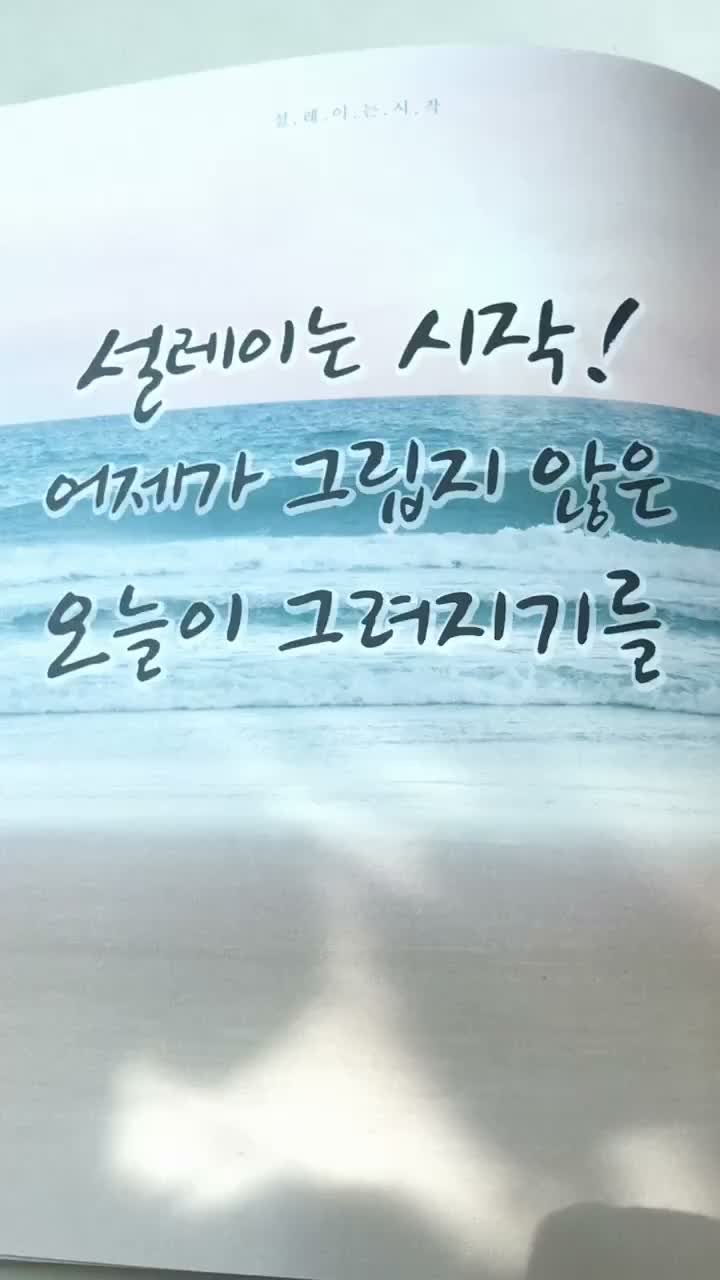 설.레.이.는.시.작
설레이는 시작!
어제가 그립지 않은
오늘이 그려지기를